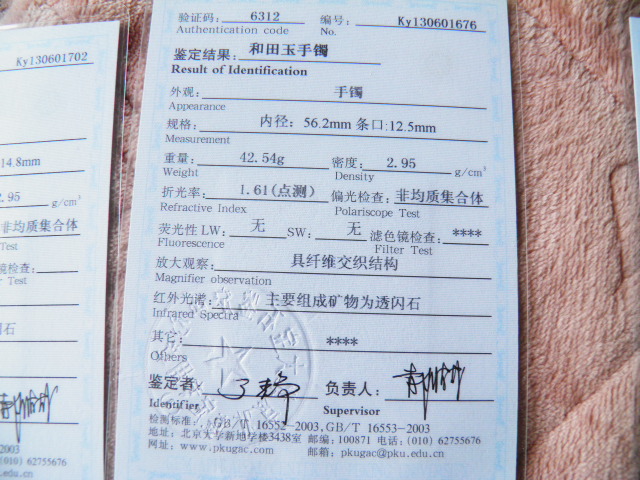 Ky130601702
14.8mm
2.95 g/cm³
非均质集合体
Test
镜检查:
r Test
闪石
2003
(010) 62755676
.edu.cn
验证码: 6312 编号: Ky130601676
Authentication code No.
鉴定结果: 和田玉手镯
Result of Identification
外观: 手镯
Appearance
规格: 内径: 56.2mm 条口:12.5mm
Measurement
重量: 42.54g 密度: 2.95 g/cm³
Weight Density
折光率: 1.61(点测) 偏光检查: 非均质集合体
Refractive Index Polariscope Test
荧光性 LW: 无 SW: 无 滤色镜检查: ****
Fluorescence Filter Test
放大观察: 具纤维交织结构
Magnifier observation
红外光谱: 主要组成矿物为透闪石
Infrared Spectra
其它: ****
Others
鉴定者: 负责人:
Identifier Supervisor
检测标准: GB/T 16552-2003,GB/T 16553-2003
地址: 北京大学新地学楼3438室 邮编:100871 电话:(010) 62755676
网址: www.pkugac.com 邮箱: pkugac@pku.edu.cn